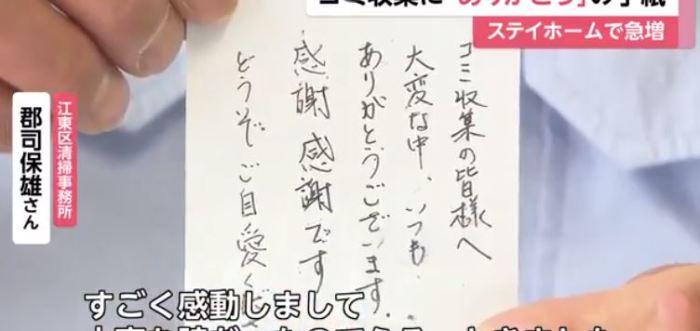 ゴミ収集に"ありがとう"の手紙
ステイホームで急増
ゴミ収集の皆様へ
大変な中、いつも
ありがとうございます。
感謝 感謝です
どうぞご自愛く
江東区清掃事務所
郡司保雄さん
すごく感動しまして